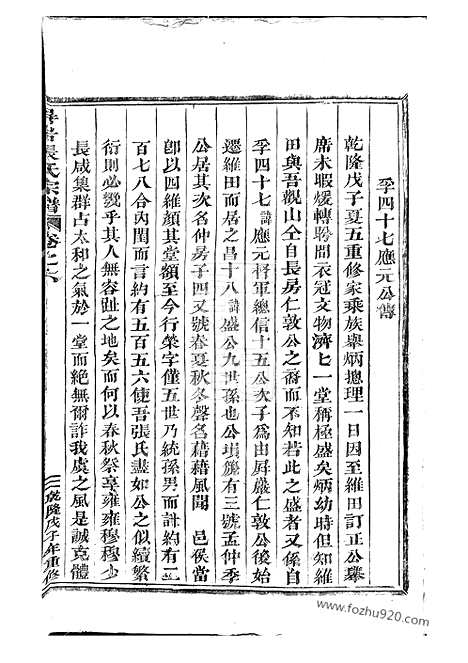 孚四十七應元公傳
乾隆戊子夏五重修家乘族舉炳摠理一日因至維田訂正公舉
席未暇煖轉盼間衣冠文物濟匕一堂稱極盛矣炳幼時但知維
田與吾觀山仝自長房仁敦公之裔而不知若此之盛者又係自
孚四十七諱應元將軍總信十五公次子為由屏巖仁敦公後始
遷維田而居之昌十八諱盛公九世孫也公塤篪有三號孟仲季
公居其次名仲房子四又號春夏秋冬聲名藉藉風聞 邑侯當
卽以四維顏其堂額至今行榮字僅五世乃統孫男而計約有二
百七八合內閨而言約有五百五六使吾張氏盡如公之似續繁
衍則必幾乎其人無容趾之地矣而何以春秋祭享雍雍穆穆少
長咸集群占太和之氣於一堂而絕無爾詐我虞之風是誠克體
張氏宗譜 卷之六
三 乾隆戊子年重修
www.fozhu920.com